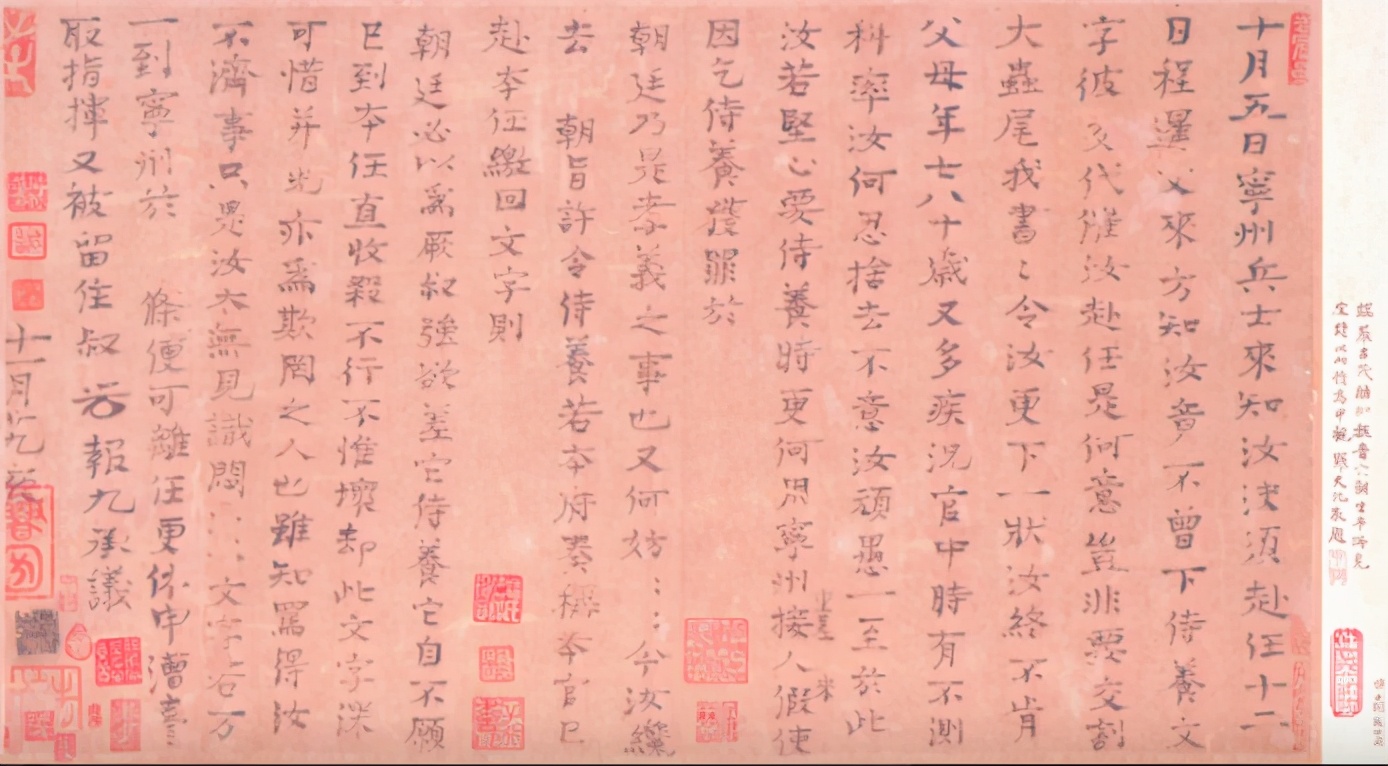 十月五日寧州兵士來知汝決須赴任十二
日程暹父來方知汝竟不曾下侍養文
字彼交代催汝赴任是何意豈非要交割
大蟲尾我書〻令汝更下一狀汝終不肯
父母年七八十歲又多疾況官中時有不測
科率汝何忍捨去不意汝頑愚一至於此
汝若堅心要侍養時更何用寧州接人假使
上差 來
因乞侍養獲罪於
朝廷乃是孝義之事也又何妨〻〻今汝纔
去 朝旨許令侍養若本府奏稱本官已
赴本任繳回文字則
朝廷必以為厥叔強欲差它侍養它自不願
已到本任直收殺不行不惟壞却此文字深
可惜并光亦為欺罔之人也雖知罵得汝
不濟事只是汝太無見識悶〻〻文字若万
一到寧州於 條便可離任更休申漕臺
取指揮又被留住叔 光報九承議
十一月九夜